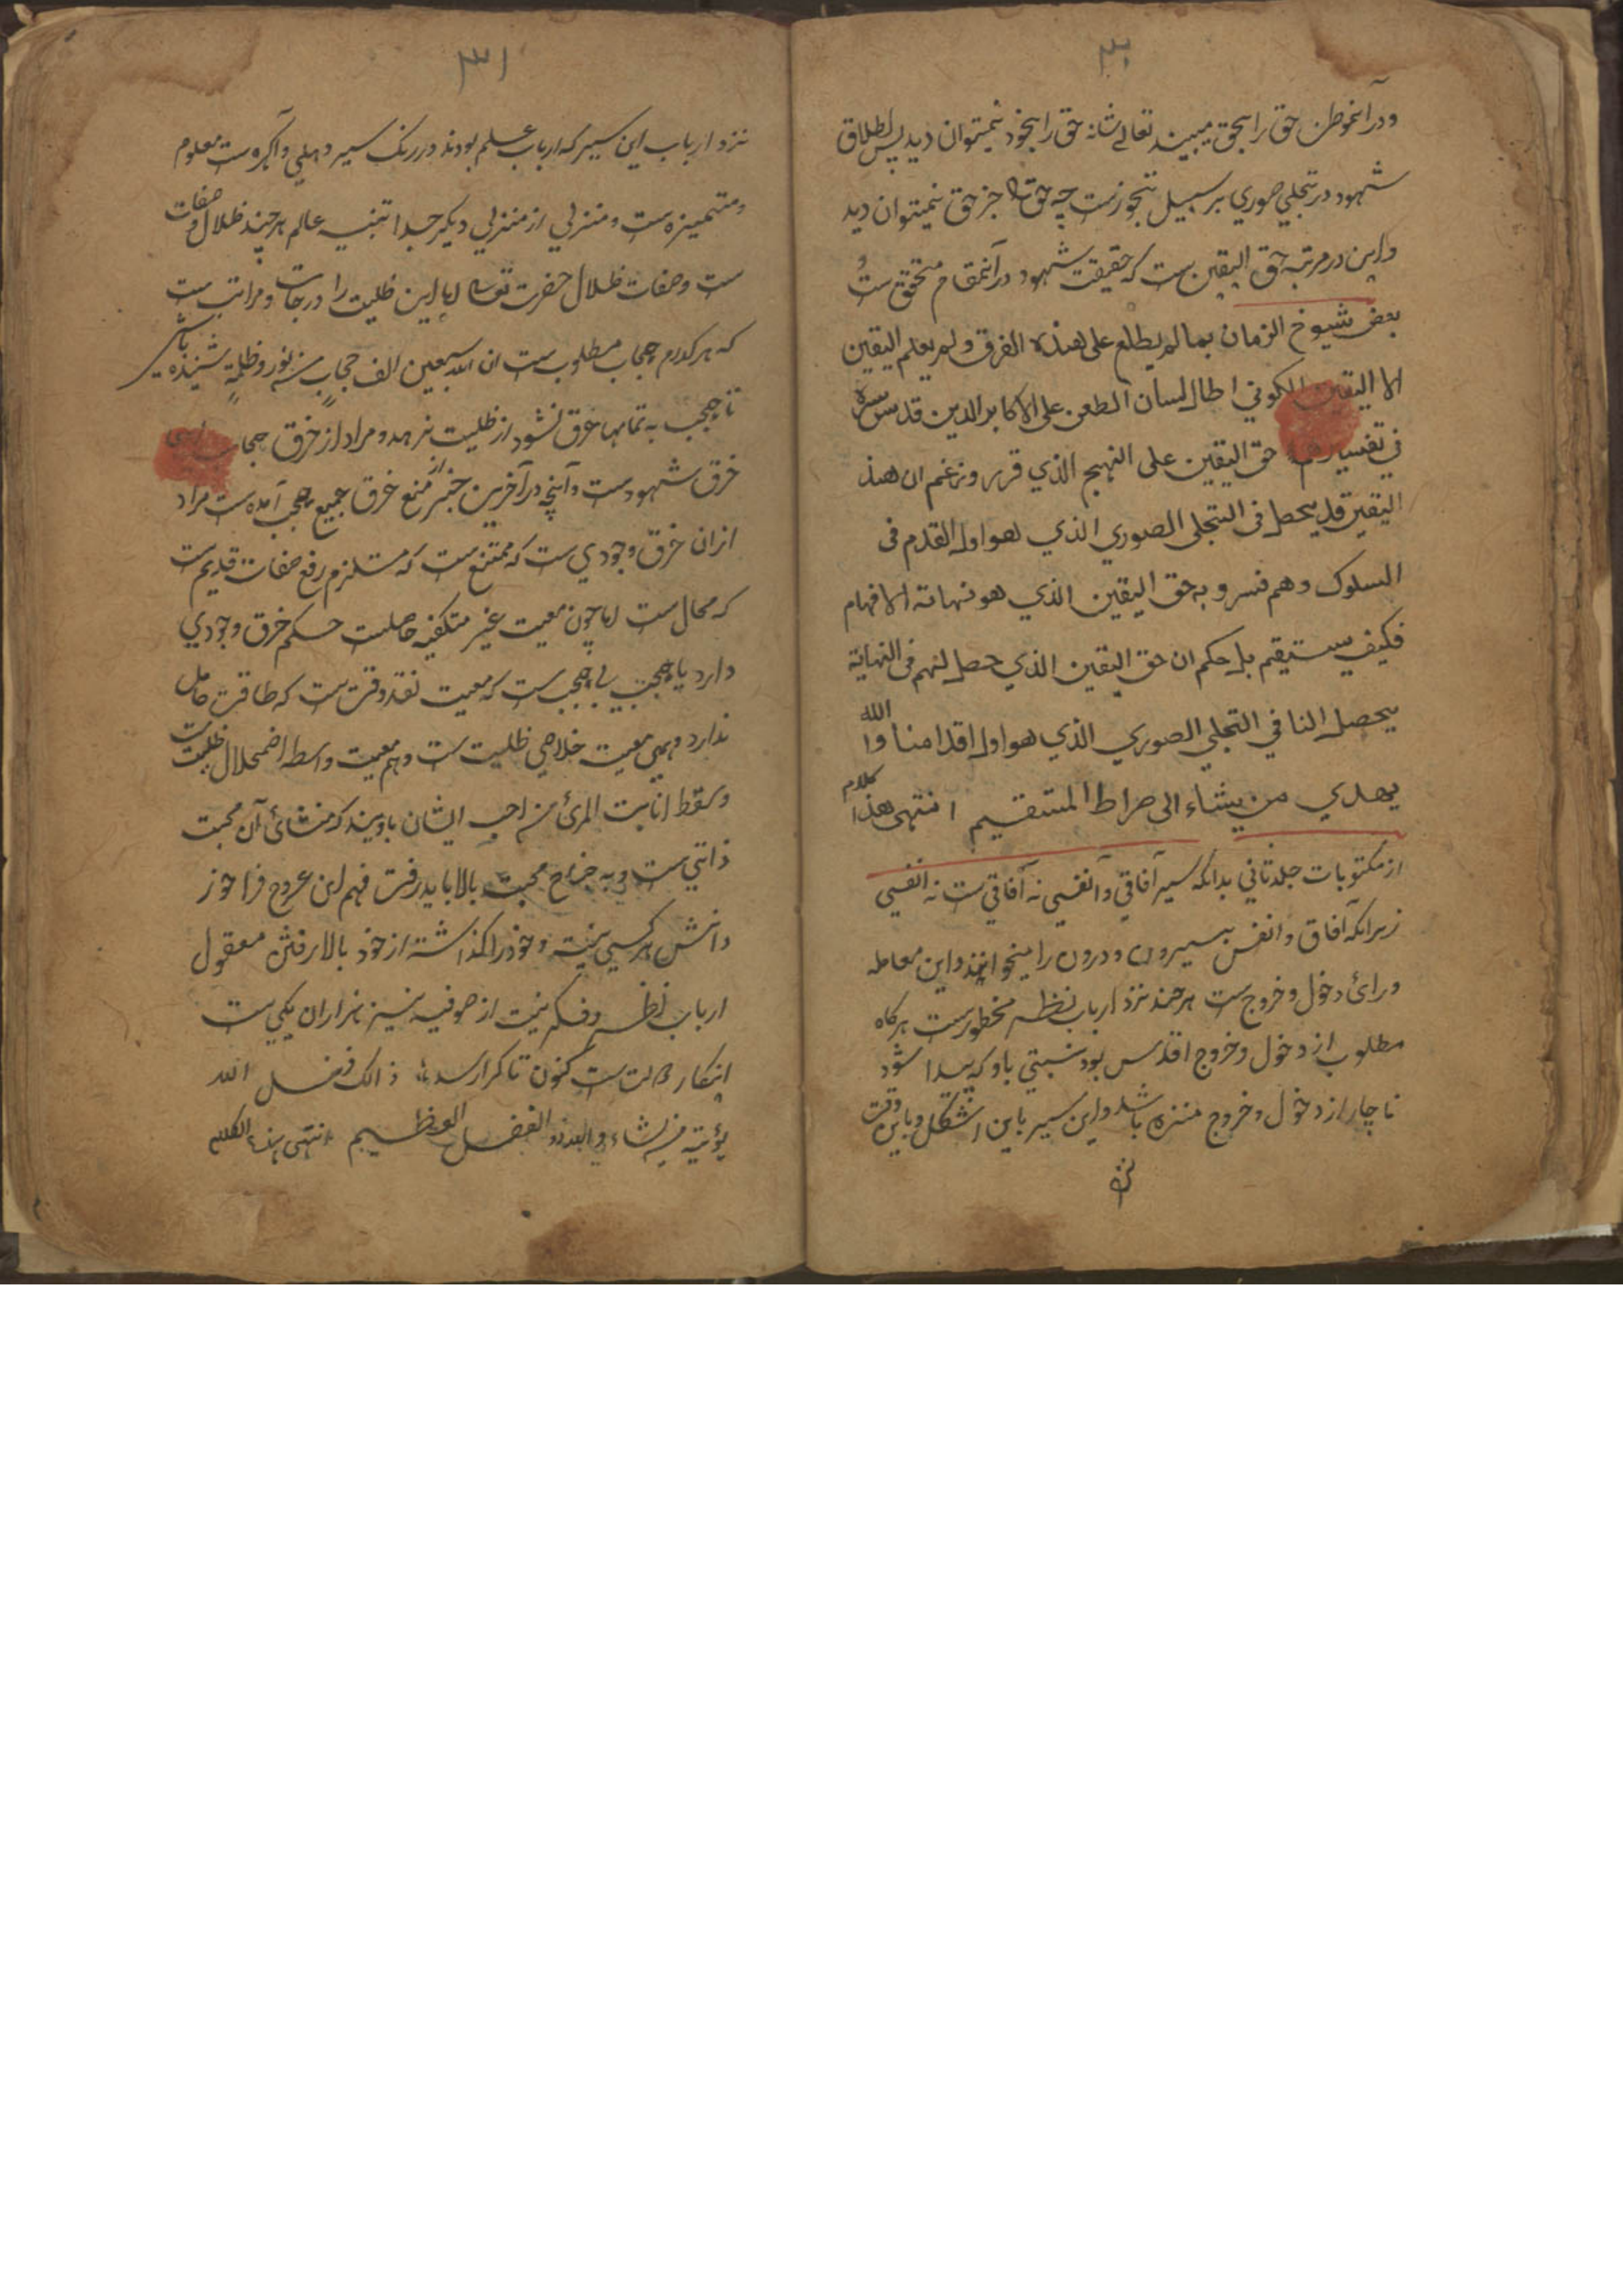 ۳۰
ودرآنموطن حق را بحق میبیند تعالے شانه حق را بخود نمیتوان دید پس اطلاق
شهود در تجلي صوري بر سبیل تجوزست چه حق را جز حق نمیتوان دید
واین در مرتبه حق الیقین ست که حقیقت شهود درآنمقام متحقق ست و
بعض شیوخ الزمان بما لم یطلع علی هذه الفرق ولم یعلم الیقین
الا الیقین الکوني اطال لسان الطعن علی الاکابر الدین قدس سره
في تفسیرهم حق الیقین علی النهج الذي قرر وزعم ان هذ
الیقین قد یحصل فی التجلی الصوري الذي هو اول القدم فی
السلوک وهم فسروبه حق الیقین الذي هو نهایة الاقهام
فکیف یستقیم بل حکم ان حق الیقین الذي حصل لهم فی النهایة
یحصل النا في التجلي الصوري الذي هو اول اقدامنا والله
یهدي من یشاء الی صراط المستقیم انتهی هذا کلام
از مکتوبات جلد ثاني بدانکه سیر آفاقي وآنفسي نه آفاقي ست نه انفسي
زیرانکه آفاق وانفس بیرون ودرون را میخوانند واین معامله
ورائ دخول وخروج ست هرچند نزد ارباب نظر محظورست هرکاه
مطلوب از دخول وخروج اقدس بود نسبتي باوکه پیدا شود
ناچار از دخول وخروج منزه باشد واین سیر باین اشکل وباین دقت
نزد
۳۱
نزد ارباب این سیر که ارباب علم بودند دررنک سیر دهلي وآکره ست معلوم
ومتمیزه ست ومنزلي از منزلي دیکر جدا تنبیه عالم هرچند ظلال صفات
ست وصفات ظلال حضرت تعالے اما این ظلیت را درجات ومراتب ست
که هرکدام حجاب مطلوب ست ان لله سبعین الف حجاب من نور وظلمة شنیده باشي
تا حجب به تمامها خرق نشود از ظلیت نرهد ومراد از خرق حجاب
خرق شهودست وآنچه درآخرین خبر از منع خرق جمیع حجب آمده ست مراد
ازان خرق وجودي ست که ممتنع ست که مستلزم رفع صفات قدیم ست
که محال ست اما چون معیت غیر متکیفه حاصلت حکم خرق وجودي
دارد باحجب بي حجب ست که معیت نقد وقت ست که طاقت حامل
ندارد وهمین معیت خلاصي ظلیت ست وهم معیت واسطه اضمحلال ظلیت ست
وسقط انابت المرئ من احب ایشان باویند که منشائ آن محبت
ذاتي ست وبه جناح محبت بالا باید رفت فهم این عروج فراخور
دانش هر کسي نیت وخودرا کذاشته از خود بالا رفتن معقول
ارباب نظر وفکر نیت از صوفیه نیز هزاران یکي ست
انتکار دولت ست کنون تاکرا رسد ذالک فضل الله
یؤتیه من یشاء والله ذو الفضل العظیم انتهی هذا الکلام